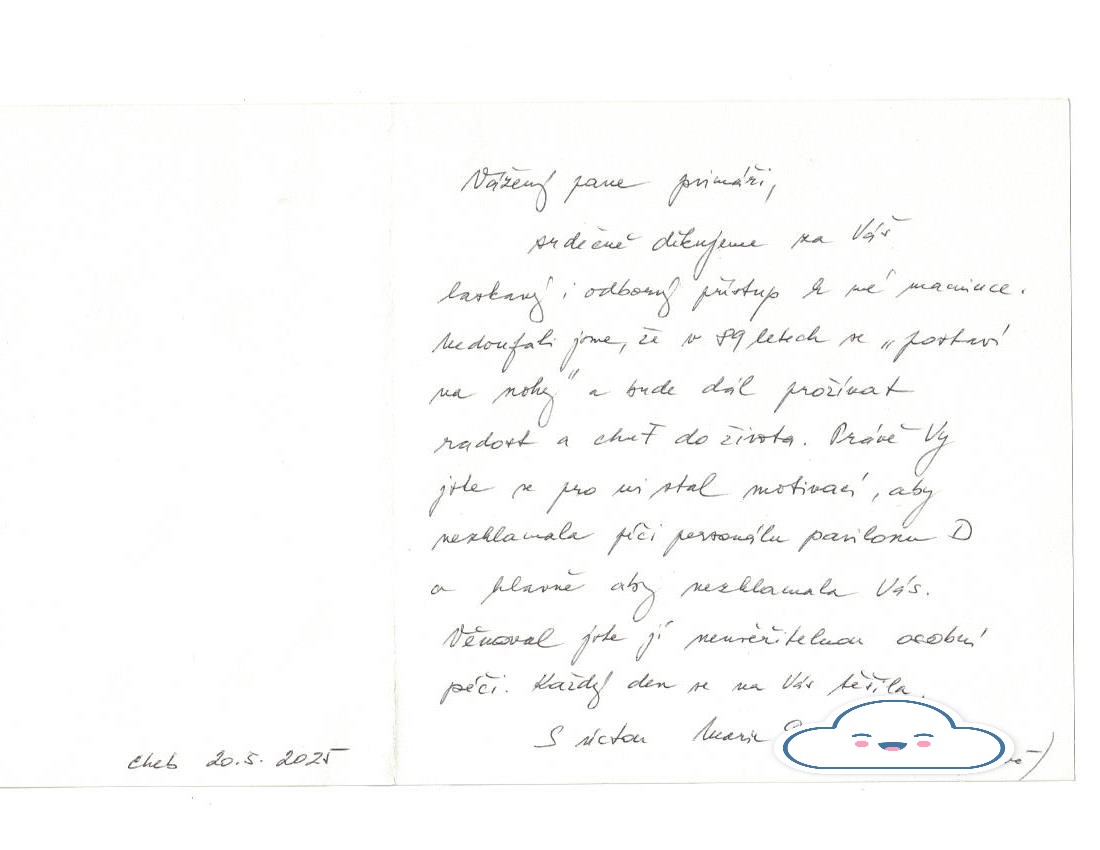 Vážený pane primáři,
srdečně děkujeme za Váš
laskavý i odborný přístup k mé mamince.
Nedoufali jsme, že v 89 letech se „postaví
na nohy" a bude dál prožívat
radost a chuť do života. Právě Vy
jste se pro ni stal motivací, aby
nezklamala péči personálu pavilonu D
a hlavně aby nezklamala Vás.
Věnoval jste jí neuvěřitelnou osobní
péči. Každý den se na Vás těšila.
S úctou Marie
Cheb 20.5. 2025